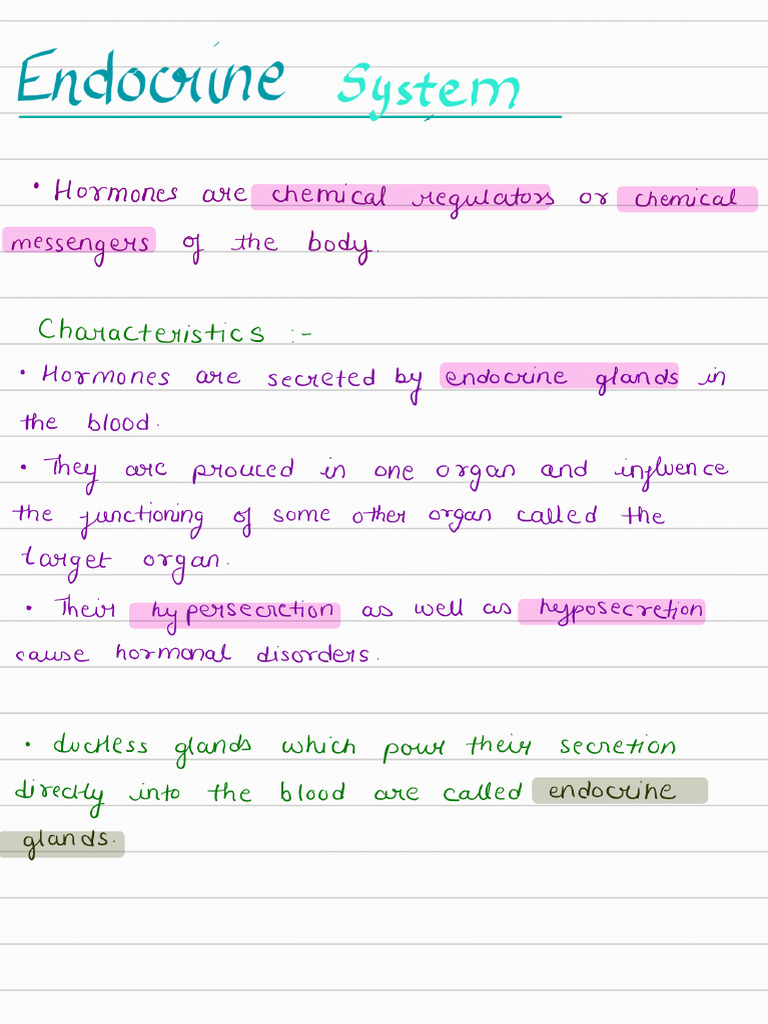 Endocrine System
• Hormones are chemical regulators or chemical
messengers of the body.
Characteristics :-
• Hormones are secreted by endocrine glands in
the blood.
• They are prouced in one organ and influence
the functioning of some other organ called the
target organ.
• Their hypersecretion as well as hyposecretion
cause hormonal disorders.
• ductless glands which pour their secretion
directly into the blood are called endocrine
glands.